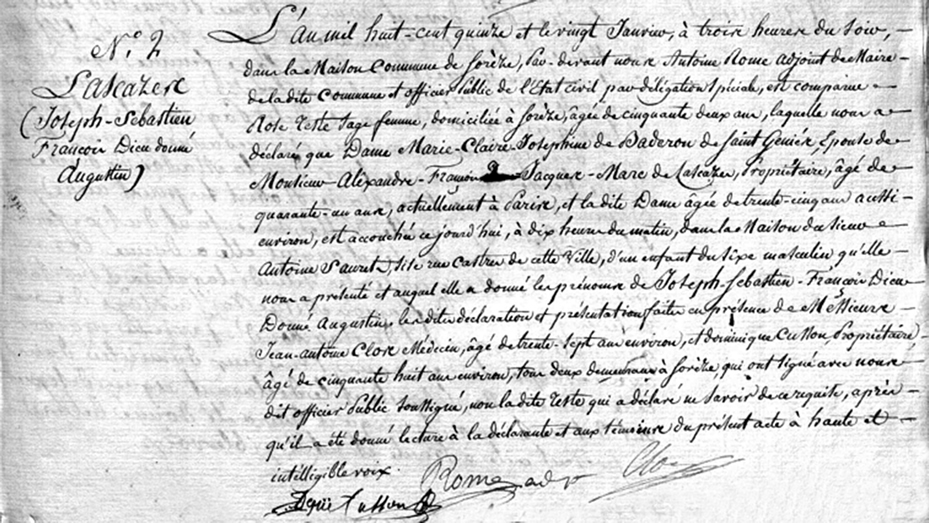 N.º 2
Lascazes
(Joseph-Sebastien
François Dieu donné
Augustin)
L'an mil huit-cent quinze et le vingt Janvier, à trois heures du Soir,
dans la Maison Commune de Sorèze, Par-devant nous Antoine Rome adjoint de Maire
de la dite Commune et officier Public de l'Etat civil par délégation Spéciale, est comparue
Rose Teste Sage femme, domiciliée à Sorèze, âgée de cinquante deux ans, laquelle nous a
déclaré que Dame Marie-Claire-Josephine de Baderon de Saint Geniés Epouse de
Monsieur Alexandre-François Jacques-Marc de Lascazes, Propriétaire, âgé de
quarante-un ans, actuellement à Paris, et la dite Dame âgée de trente-cinq ans aussi
environ, est accouchée ce jourd'hui, à dix heures du matin, dans la Maison du Sieur
Antoine Sauret, Sise rue Castres de cette Ville, d'un enfant du Sexe masculin qu'elle
nous a présenté et auquel elle a donné les prénoms de Joseph-Sebastien-François Dieu
Donné Augustin, les dites déclaration et présentation faites en présence de Messieurs
Jean-antoine Clos Médecin, âgé de trente-Sept ans environ, et dominique Cusson Propriétaire
âgé de cinquante huit ans environ, tous deux demeurans à Sorèze, qui ont Signé avec nous
dit officier Public Soussigné, non la dite Teste qui a déclaré ne Savoir de ce requise, après
qu'il a été donné lecture à la déclarante et aux témoins du présent acte à haute et
intelligible voix.
Rome adt Clos
Cusson